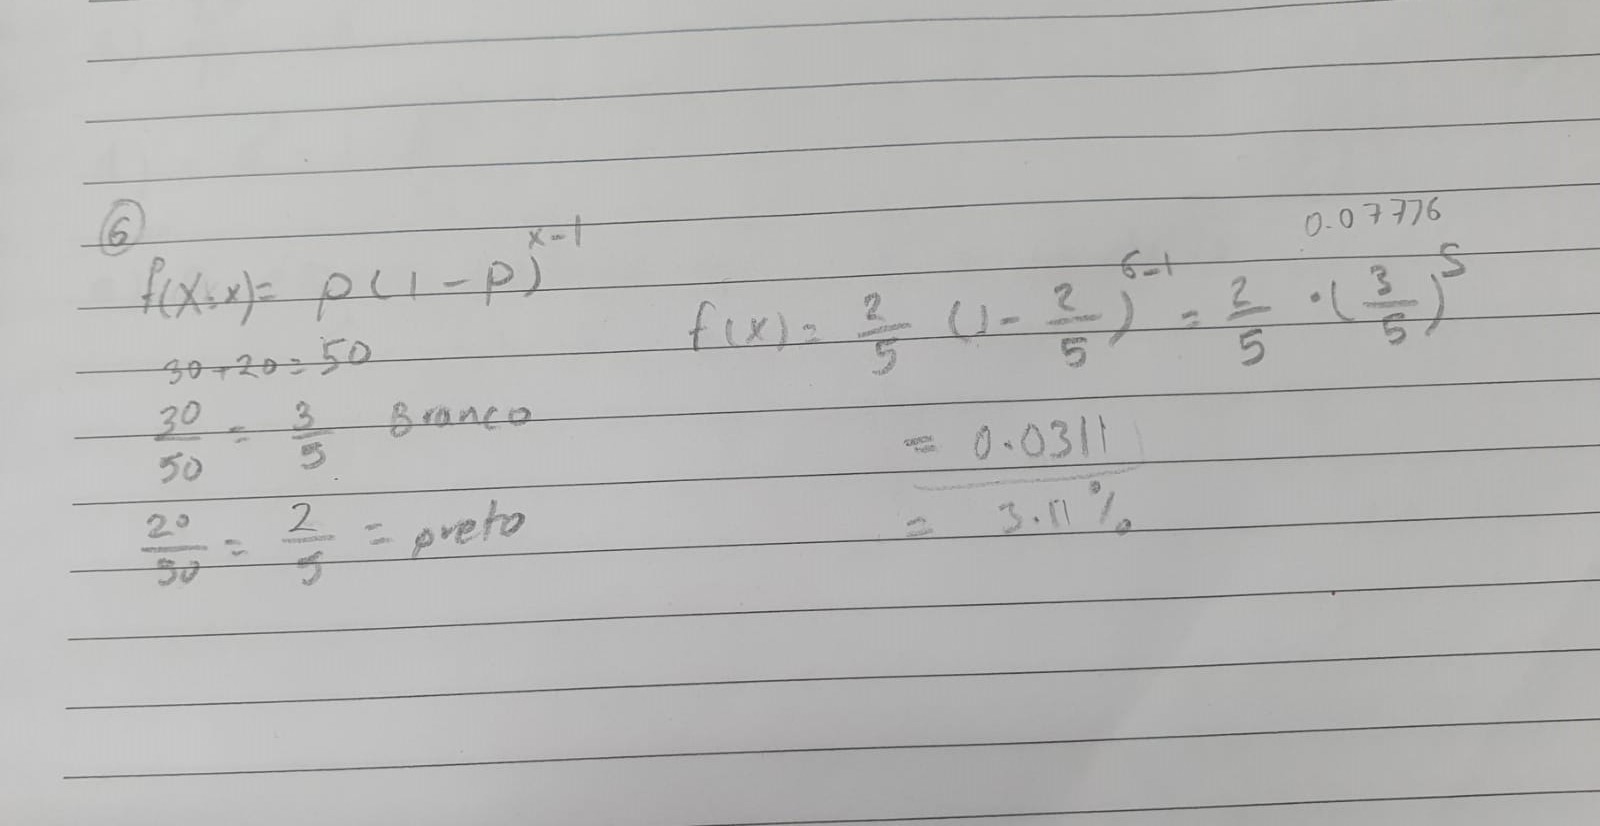 6
f(X=x)= p(1-p)^x-1
30+20=50
30/50 = 3/5 Branco
20/50 = 2/5 = preto
0.07776
f(x)= 2/5 (1- 2/5)^6-1 = 2/5 · (3/5)^5
= 0.0311
= 3.11%